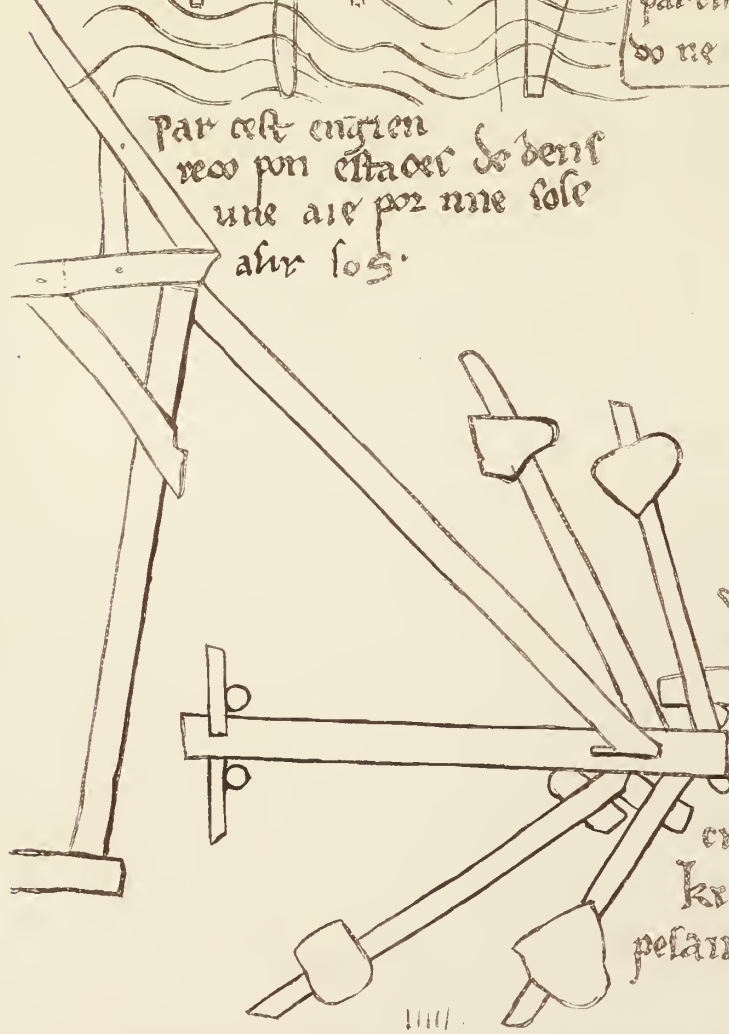 do ne
Par cest engien
reco pon estaces de dens
une aie por une sole
asir sos.
pesan